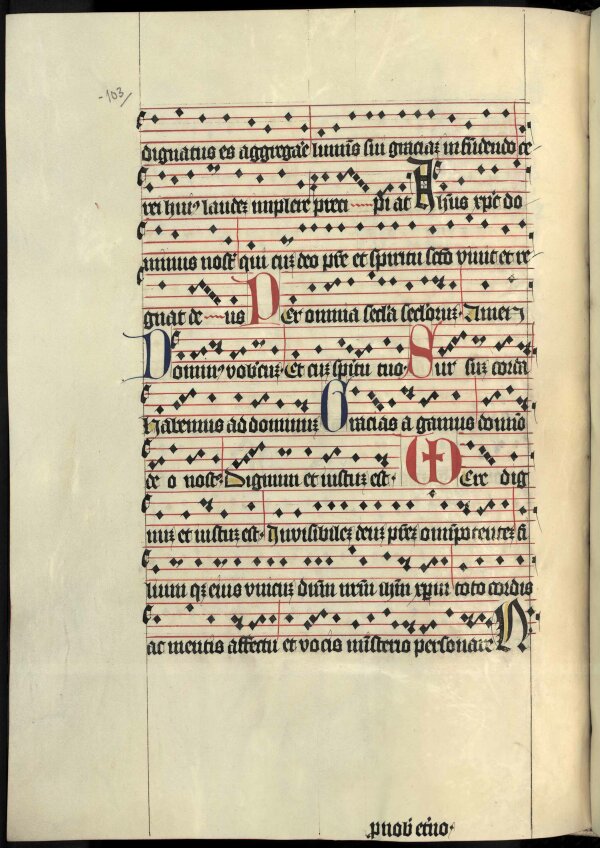 -103/
dignatus es aggregaͤe luminis sui graciaꝫ infundendo ce
rei huiꝰ laudeꝫ implere preci pi at Jħus xp̄c do
minus nostꝭ qui cuꝫ deo pr̄e et spiritu sc̄to viuit et re
gnat de us Per omnia sec̄la sec̄loruꝫ · Amen
Dominꝰ vobiscuꝫ · Et cuꝫ spiritu tuo · Sur suꝫ corda
Habemus ad dominuꝫ Gracias a gamus domio
de o nostꝭ · Dignum et iustuꝫ est · Vere dig
nuꝫ et iustuꝫ est · Inuisibileꝫ deuꝫ pr̄eꝫ omīpotenteꝫ fi
lium qꝫ eius vnicuꝫ dn̄m nr̄m ih̄m xp̄um toto cordis
ac mentis affectu et vocis mīsterio personare N